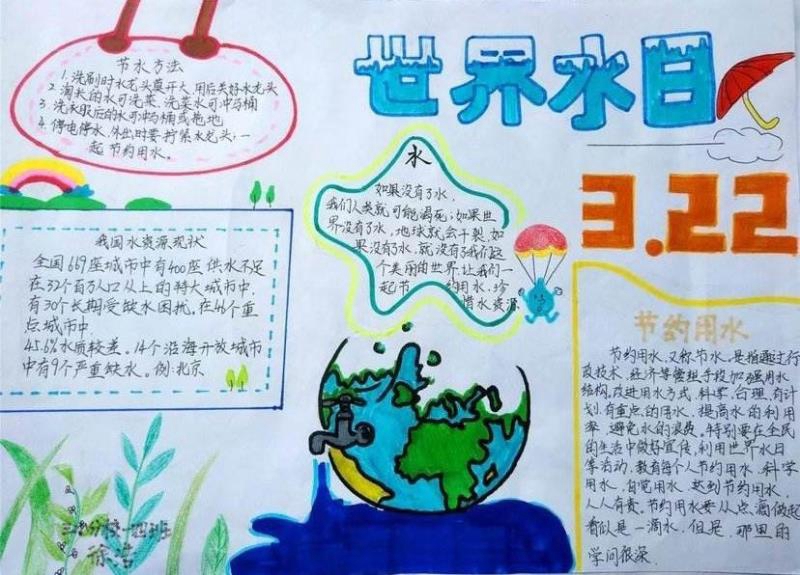 世界水日
3.22
节水方法
1. 洗刷时水龙头莫开大,用后关好水龙头
2. 淘米的水可洗菜,洗菜水可冲马桶
3. 洗衣服后的水可冲马桶或拖地
4. 停电停水,外出时要拧紧水龙头,一
起节约用水。
水
如果没有了水,
我们人类就可能渴死;如果世
界没有了水,地球就会干裂,如
果没有了水,就没有了我们这
个美丽的世界,让我们一
起节约用水,珍
惜水资源
我国水资源现状
全国669座城市中有400座供水不足
在32个百万人口以上的特大城市中,
有30个长期受缺水困扰。在46个重
点城市中
45.6%水质较差。14个沿海开放城市
中有9个严重缺水。例:北京
节约用水
节约用水,又称节水,是指通过行
政技术,经济等管理手段加强用水
结构,改进用水方式,科学,合理,有计
划,有重点的用水,提高水的利用
率,避免水的浪费。特别要在全民
的生活中做好宣传,利用世界水日
等活动,教育每个人节约用水,科学
用水,自觉用水,达到节约用水,
人人有责。节约用水要从点滴做起
看似是一滴水,但是,那里的
学问很深
分校一四班
徐浩